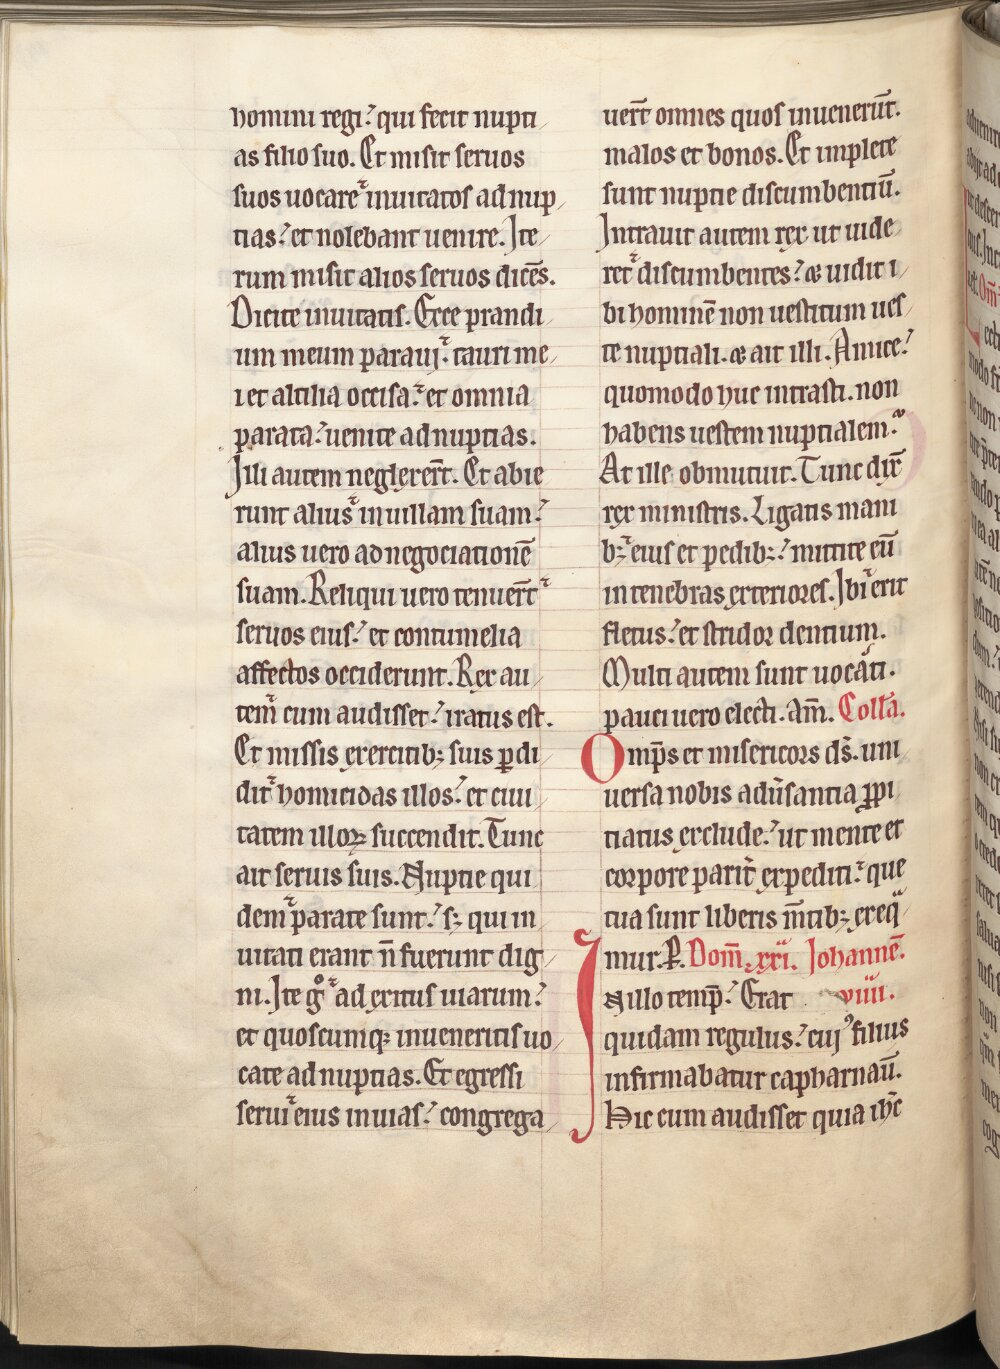 homini regi? qui fecit nupti
as filio suo. Et misit seruos
suos uocare inuitatos ad nup
tias? et nolebant uenire. Ite
rum misit alios seruos dicēs.
Dicite inuitatis. Ecce prandi
um meum paraui. tauri me
i et altilia occisa? et omnia
parata? uenite ad nuptias.
Illi autem neglexerr̄t. Et abie
runt alius in uillam suam?
alius uero ad negociationē
suam. Reliqui uero tenuerr̄t
seruos eius? et contumelia
affectos occiderunt. Rex au
tem̄ cum audisset? iratus est.
Et missis exercitib; suis ꝑdi
dit homicidas illos? et ciui
tatem illoꝝ succendit. Tunc
ait seruis suis. Nuptie qui
dem parate sunt? s; qui in
uitati erant n̄ fuerunt dig
ni. Ite gͦ ad exitus uiarum?
et quoscumq; inueneritis uo
cate ad nuptias. Et egressi
serui eius in uias? congrega
uerr̄t omnes quos inuenerūt.
malos et bonos. Et implete
sunt nuptie discumbentiū.
Intrauit autem rex ut uide
ret discumbentes? & uidit i
bi hominē non uestitum ues
te nuptiali. & ait illi. Amice?
quomodo huc intrasti. non
habens uestem nuptialem?
At ille obmutuit. Tunc dix̄
rex ministris. Ligatis mani
b; eius et pedib;? mittite eū
in tenebras exteriores. Ibi erit
fletus? et stridor dentium.
Multi autem sunt uocati.
pauci uero electi. Am̄. Coll̄a.
Omp̄s et misericors ds̄. uni
uersa nobis adūsantia ꝓpi
tiatus exclude? ut mente et
corpore parit̄ expediti? que
tua sunt liberis m̄tib; exeq̄
mur. P. Dom̄. xxi. Johannē.
In illo temp̄? Erat uiiii.
quidam regulus? cuiꝰ filius
infirmabatur capharnaū.
Hic cum audisset quia ihc̄